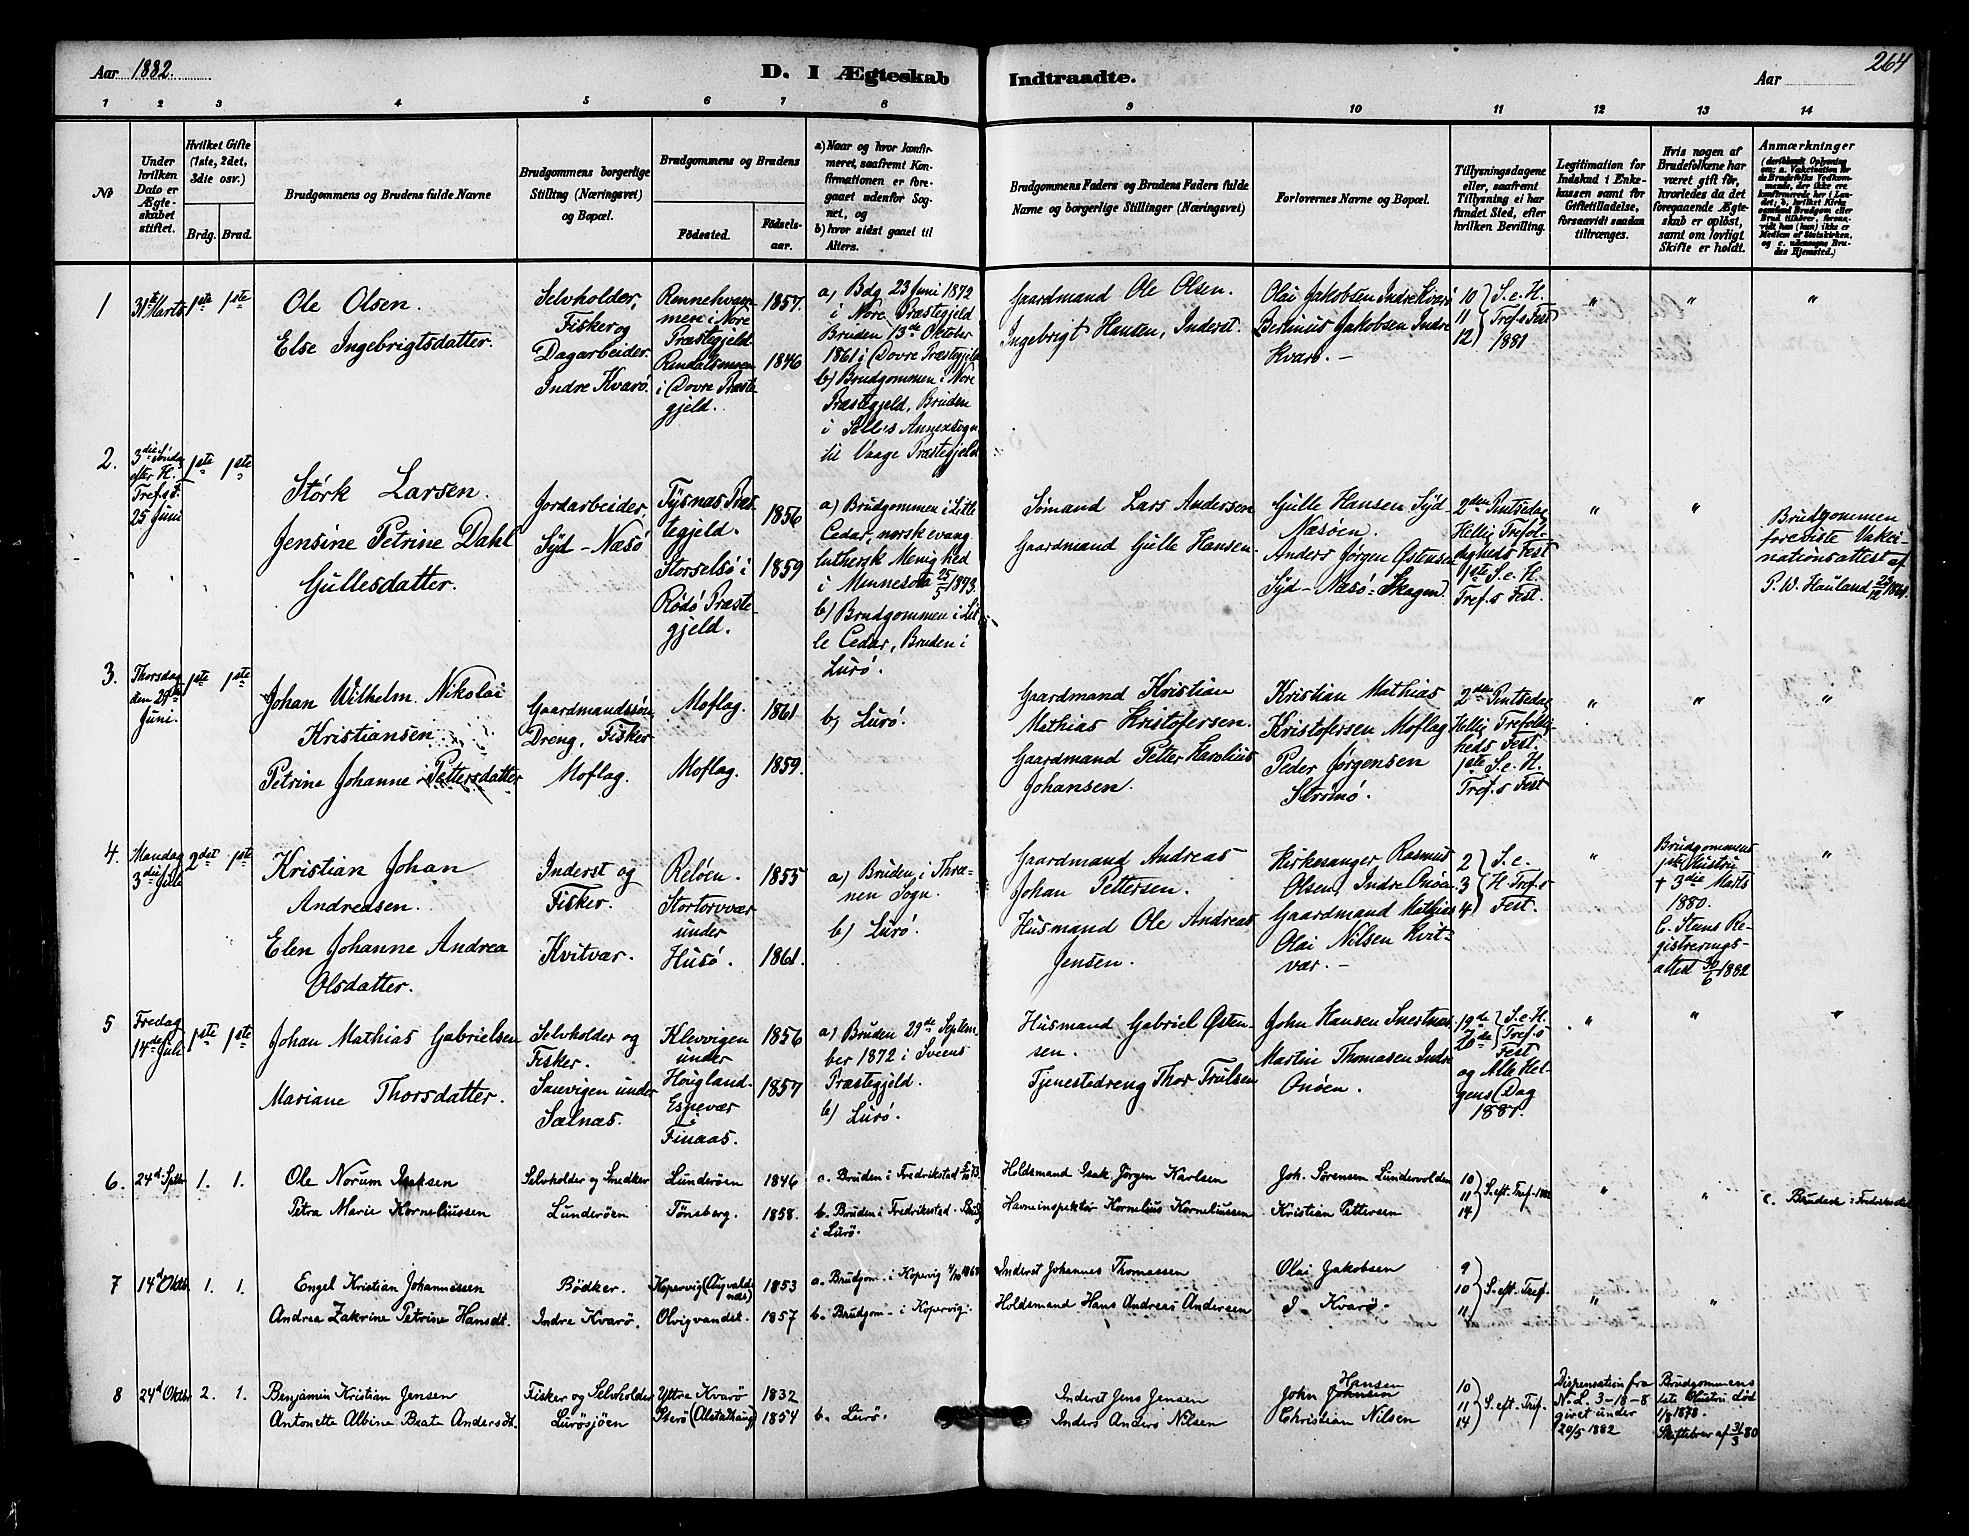 Aar 1882.
D. I Ægteskab
Indtraadte.
Aar
264
1 2 3 4 5 6 7 8 9 10 11 12 13 14
No
Under hvilken Dato er Ægteskabet stiftet.
Hvilket Gifte (1ste, 2det, 3die osv.)
Brdg. Brud.
Brudgommens og Brudens fulde Navne
Brudgommens borgerlige Stilling (Næringsvei) og Bopæl.
Brudgommens og Brudens
Fødested.
Fødselsaar.
a) Naar og hvor konfirmeret, saafremt Konfirmationen er foregaaet udenfor Sognet, og
b) hvor sidst gaaet til Alters.
Brudgommens Faders og Brudens Faders fulde Navne og borgerlige Stillinger (Næringsvei)
Forlovernes Navne og Bopæl.
Tillysningsdagene eller, saafremt Tillysning ei har fundet Sted, efter hvilken Bevilling.
Legitimation for Indskud i Enkekassen samt for Giftetilladelse, forsaavidt saadan tiltrænges.
Hvis nogen af Brudefolkene har været gift før, hvorledes da det foregaaende Ægteskab er opløst, samt om lovligt Skifte er holdt.
Anmærkninger
1
31te Marts
1ste 1ste
Ole Olsen.
Else Ingebrigtsdatter.
Selvholder,
Fisker og
Dagarbeider.
Indre Kvarø.
Rennehvammen i Nore
Præstegjeld.
Rendalsmoen
i Dovre Præstegjeld.
1857.
1846
a) Bdg 23 Juni 1872
i Nore Præstegjeld
Bruden 13de Oktober
1861 i Dovre Præstegjeld
b) Brudgommen i Nore
Præstegjeld, Bruden
i Sells Annexsogn
til Vaage Præstegjeld
Gaardmand Ole Olsen.
Ingebrigt Hansen, Inderst.
Olai Jakobsen Indre Kvarø
Bertinus Jakobsen Indre
Kvarø. –
10
11
12
S. e. H.
Tref.s Fest
1881
" " "
2.
3die Søndag
efter H.
Tref.s F.
25 Juni
1ste 1ste
Størk Larsen.
Jensine Petrine Dahl
Gullesdatter.
Jordarbeider,
Syd-Næsø
Tysnæs Præstegjeld.
Storselsø i
Rødø Præstegjeld.
1856
1859
a) Brudgommen i Little
Cedar, norsk evang
luthersk Menighed
i Minnesota 25/5 1873.
b) Brudgommen i Little Cedar, Bruden i
Lurø.
Sømand Lars Andersen
Gaardmand Gulle Hansen.
Gulle Hansen Syd-
Næsøen.
Anders Jørgen Østensen
Syd-Næsø-Skagen.
2den Pintsedag
Hellig Trefoldigheds Fest
1ste S. e. H.
Tref.s Fest.
" "
Brudgommen
foreviste Vakcinationsattest af
P. W. Hauland
3.
Thorsdag
den 29de
Juni.
1ste 1ste
Johan Wilhelm Nikolai
Kristiansen
Petrine Johanne Pettersdatter
Gaardmandssøn
Dreng, Fisker
Moflag.
Moflag.
Moflag.
1861
1859.
b) Lurø.
Gaardmand Kristian
Mathias Kristofersen.
Gaardmand Petter Karolius
Johansen.
Kristian Mathias
Kristofersen Moflag
Peder Jørgensen
Strømø.
2den Pintsedag
Hellig Trefoldigheds Fest.
1ste S. e. H.
Tref.s Fest
" " "
4.
Mandag
3die Juli
2det 1ste
Kristian Johan
Andreasen.
Elen Johanne Andrea
Olsdatter.
Inderst og
Fisker.
Kvitvær.
Reløen.
Stortorvvær
under
Husø.
1855
1861.
a) Bruden i Thrænen Sogn.
b) Lurø.
Gaardmand Andreas
Johan Pettersen.
Husmand Ole Andreas
Jensen.
Kirkesanger Rasmus
Olsen, Indre Onøen.
Gaardmand Mathias
Olai Nilsen Kvitvær. –
2
3
4
S. e.
H. Tref.s
Fest.
"
Brudgommens
1ste Hustru
† 3die Marts
1880.
C. Steens Registreringsattest 30/6 1882
"
5
Fredag
14de Juli
1ste 1ste
Johan Mathias Gabrielsen
Mariane Thorsdatter.
Selvholder og
Fisker.
Sauevigen under
Sælnæs.
Klevvigen
under
Hougland
Espevær
Finaas.
1856
1857
a) Bruden 29de September 1872 i Sveens
Præstegjeld.
b) Lurø.
Husmand Gabriel Østensen.
Tjenestedreng Thor Trulsen
John Hansen Snestnæs
Martin Thomasen Indre
Onøen.
19de
20de
S. e. H.
Tref.s
Fest
og Alle Helgens Dag
1881.
" " "
6.
24d Sptbr
1. 1.
Ole Norum Isaksen
Petra Marie Korneliussen
Selvholder og Snedker
Lunderøen
Lunderøen
Tønsberg.
1846
1858.
a. Bruden i Fredrikstad
b. Bruden i Fredrikstad. Brdg
i Lurø.
Holdsmand Isak Jörgen Karlsen
Havneinspektör Kornelius Korneliussen
Joh. Sørensen Lundervolden
Kristian Pettersen
10
11
14
S. eft. Tref. 1882
" "
c. Brudens: Fredrikstad
7
14d Oktb.
1. 1.
Engel Kristian Johannessen
Andrea Zakrine Petrine Hansdt.
Bödker.
Indre Kvarø.
Kopervig (Augvaldnæs)
Olvigvandet.
1853
1857
a. Brudgom – i Kopervig
b. Brudgom – i Kopervig.
Inderst Johannes Thomassen
Holdsmand Hans Andreas Andersen
Olai Jakobsen
I – Kvarø –
9
10
11
S. eft. Tref.
" "
8
24d Oktbr
2. 1.
Benjamin Kristian Jensen
Antonette Albine Beate Andersdt.
Fisker og Selvholder
Lurøsjöen
Yttre Kvarö
Sterö (Alstathaug)
1832
1854
b. Lurø.
Inderst Jens Jensen
Inders Anders Nilsen
Hansen
John Johnsen
Christian Nilsen
10
11
14
S. eft. Tref.
Dispensation fra
N. L. 3-18-8
givet under
20/5 1882
Brudgommens
1ste Hustru död
1/8 1878.
Skiftebrev af 31/3 80